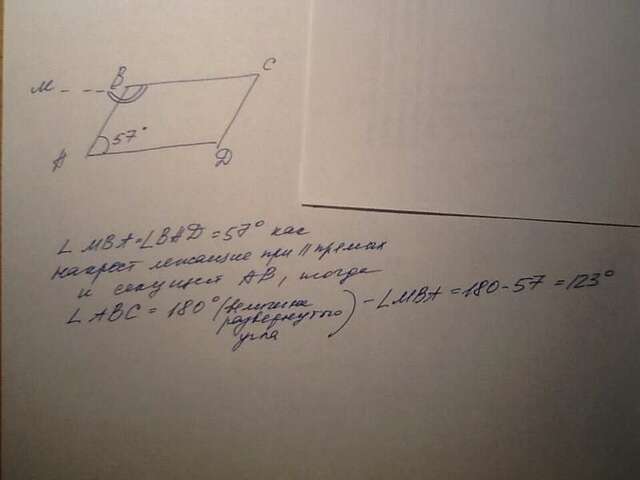 M
B
C
57°
A
D
∠ MBA = ∠BAD = 57° как
накрест лежащие при || прямых
и секущей AB, тогда
∠ ABC = 180° (величина развернутого угла) - ∠MBA = 180 - 57 = 123°